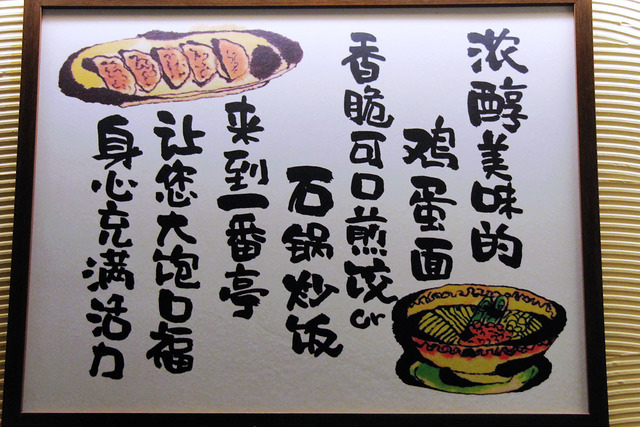 浓醇美味的
鸡蛋面
香脆可口煎饺or
石锅炒饭
来到一番亭
让您大饱口福
身心充满活力